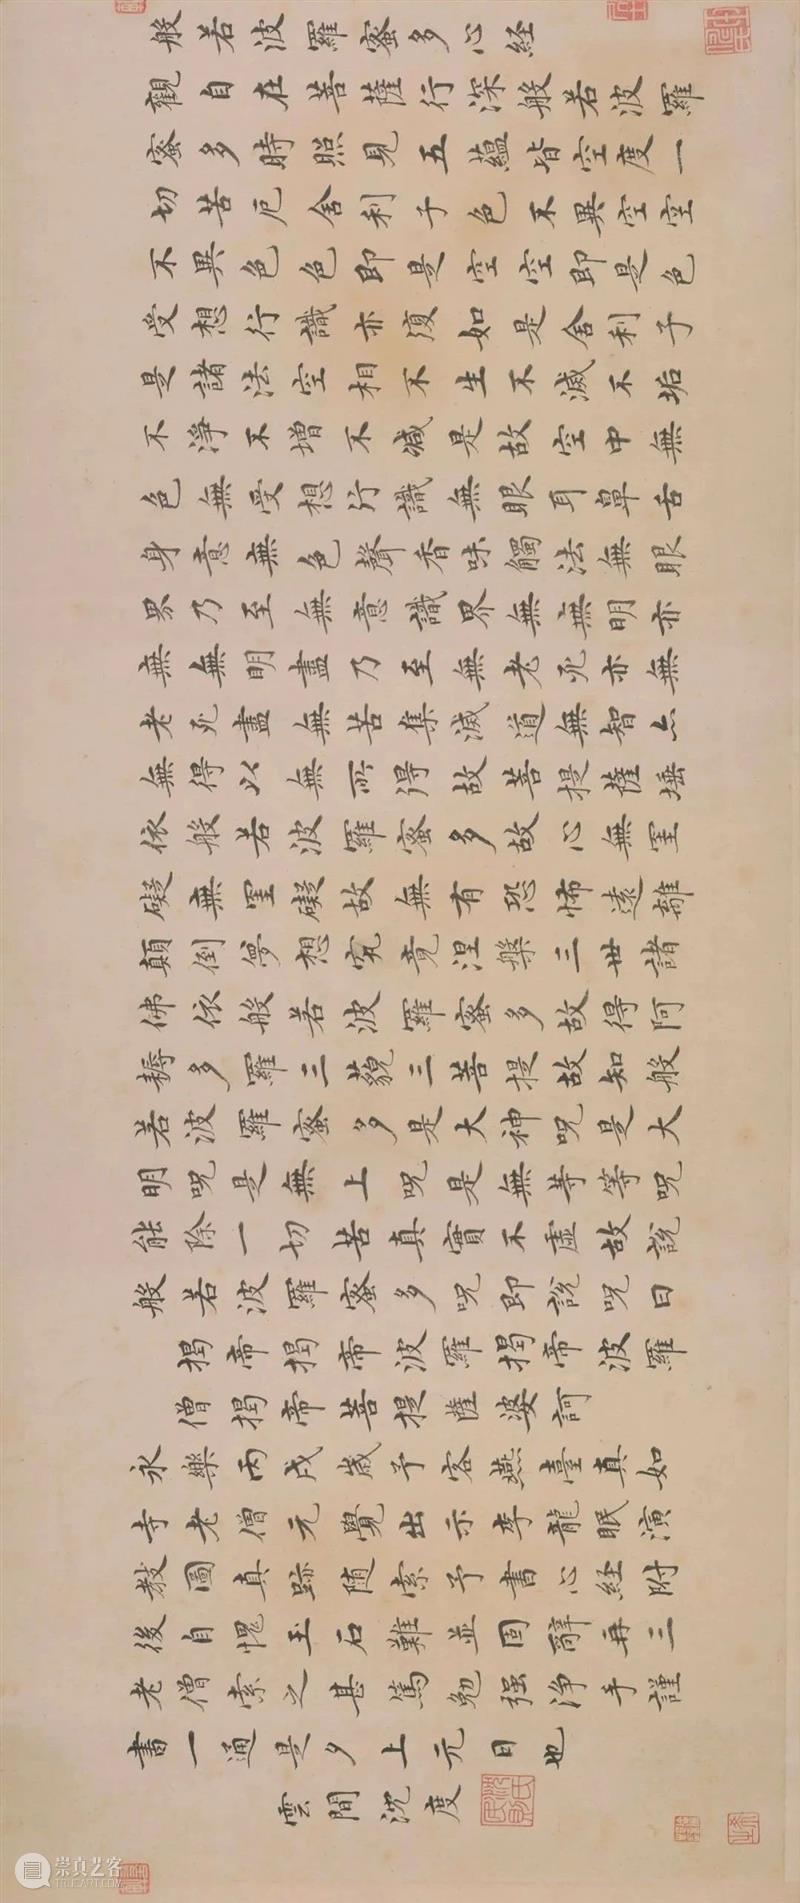 般若波羅蜜多心経
觀自在菩薩行深般若波羅
蜜多時照見五蘊皆空度一
切苦厄舍利子色不異空空
不異色色即是空空即是色
受想行識亦復如是舍利子
是諸法空相不生不滅不垢
不淨不增不減是故空中無
色無受想行識無眼耳鼻舌
身意無色聲香味觸法無眼
界乃至無意識界無無明亦
無無明盡乃至無老死亦無
老死盡無苦集滅道無智亦
無得以無所得故菩提薩埵
依般若波羅蜜多故心無罣
礙無罣礙故無有恐怖遠離
顛倒夢想究竟涅槃三世諸
佛依般若波羅蜜多故得阿
耨多羅三藐三菩提故知般
若波羅蜜多是大神呪是大
明呪是無上呪是無等等呪
能除一切苦真實不虛故說
般若波羅蜜多呪即說呪曰
揭帝揭帝波羅揭帝波羅
僧揭帝菩提薩婆訶
永樂丙戌歲予客燕臺真如
寺老僧元覺出示李龍眠演
教圖真跡随索予書心経附
後自愧玉石難並固辭再三
老僧索之甚篤勉强淨手謹
書一通是夕上元日也
雲間沈度
崇真艺客